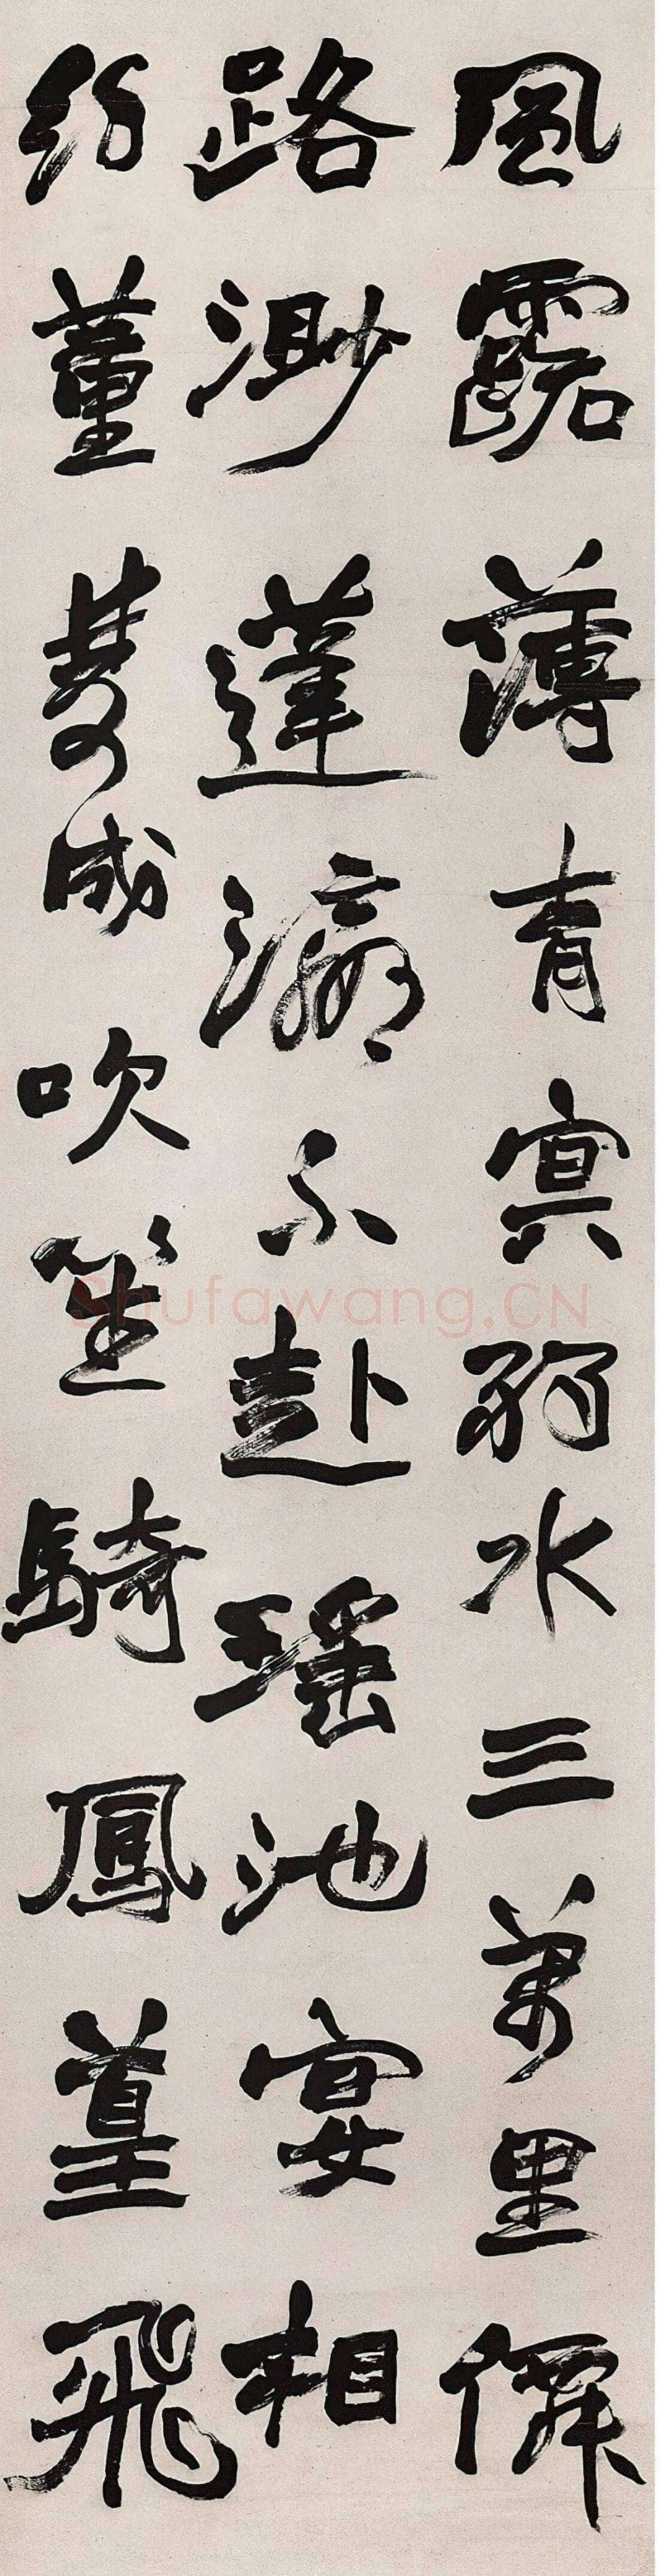 風露薄青冥弱水三萬里僊
路渺蓬瀛不赴瑤池宴相
約董雙成吹笙騎鳳葟飛
Shufawang.CN